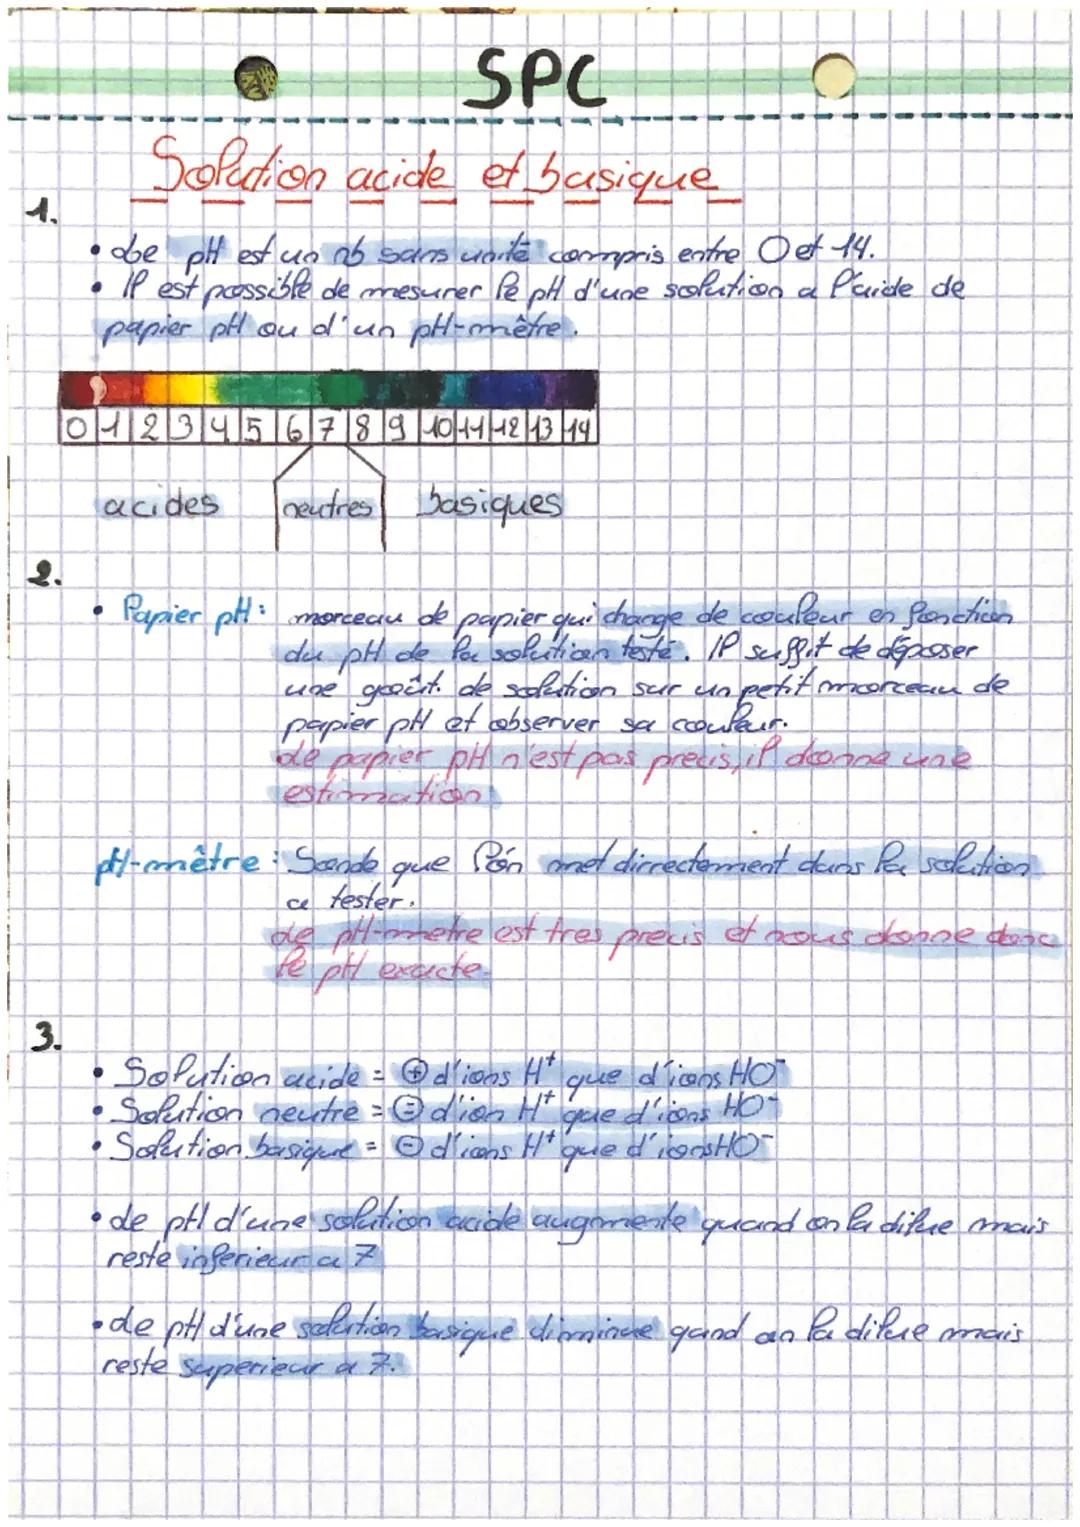 SPC
Solution acide et basique
1.
• Le pH est un nb sans unité compris entre 0 et 14.
• Il est possible de mesurer le pH d'une solution a l'aide de
papier pH ou d'un pH-mêtre.
0 1 2 3 4 5 6 7 8 9 10 11 12 13 14
acides neutres basiques
2.
• Papier pH : morceau de papier qui change de couleur en fonction
du pH de la solution testé. Il suffit de déposer
une goût. de solution sur un petit morceau de
papier pH et observer sa couleur.
Le papier pH n'est pas precis, il donne une
estimation
pH-mêtre : Sonde que l'on met dirrectement dans la solution
a tester.
Le pH-metre est tres precis et nous donne donc
le pH exacte.
3.
• Solution acide = ⊕ d'ions H⁺ que d'ions HO⁻
• Solution neutre = ⊜ d'ion H⁺ que d'ions HO⁻
• Solution basique = ⊖ d'ions H⁺ que d'ions HO⁻
• Le pH d'une solution acide augmente quand on la dilue mais
reste inferieur a 7
• Le pH d'une solution basique diminue qand on la dilue mais
reste superieur a 7.